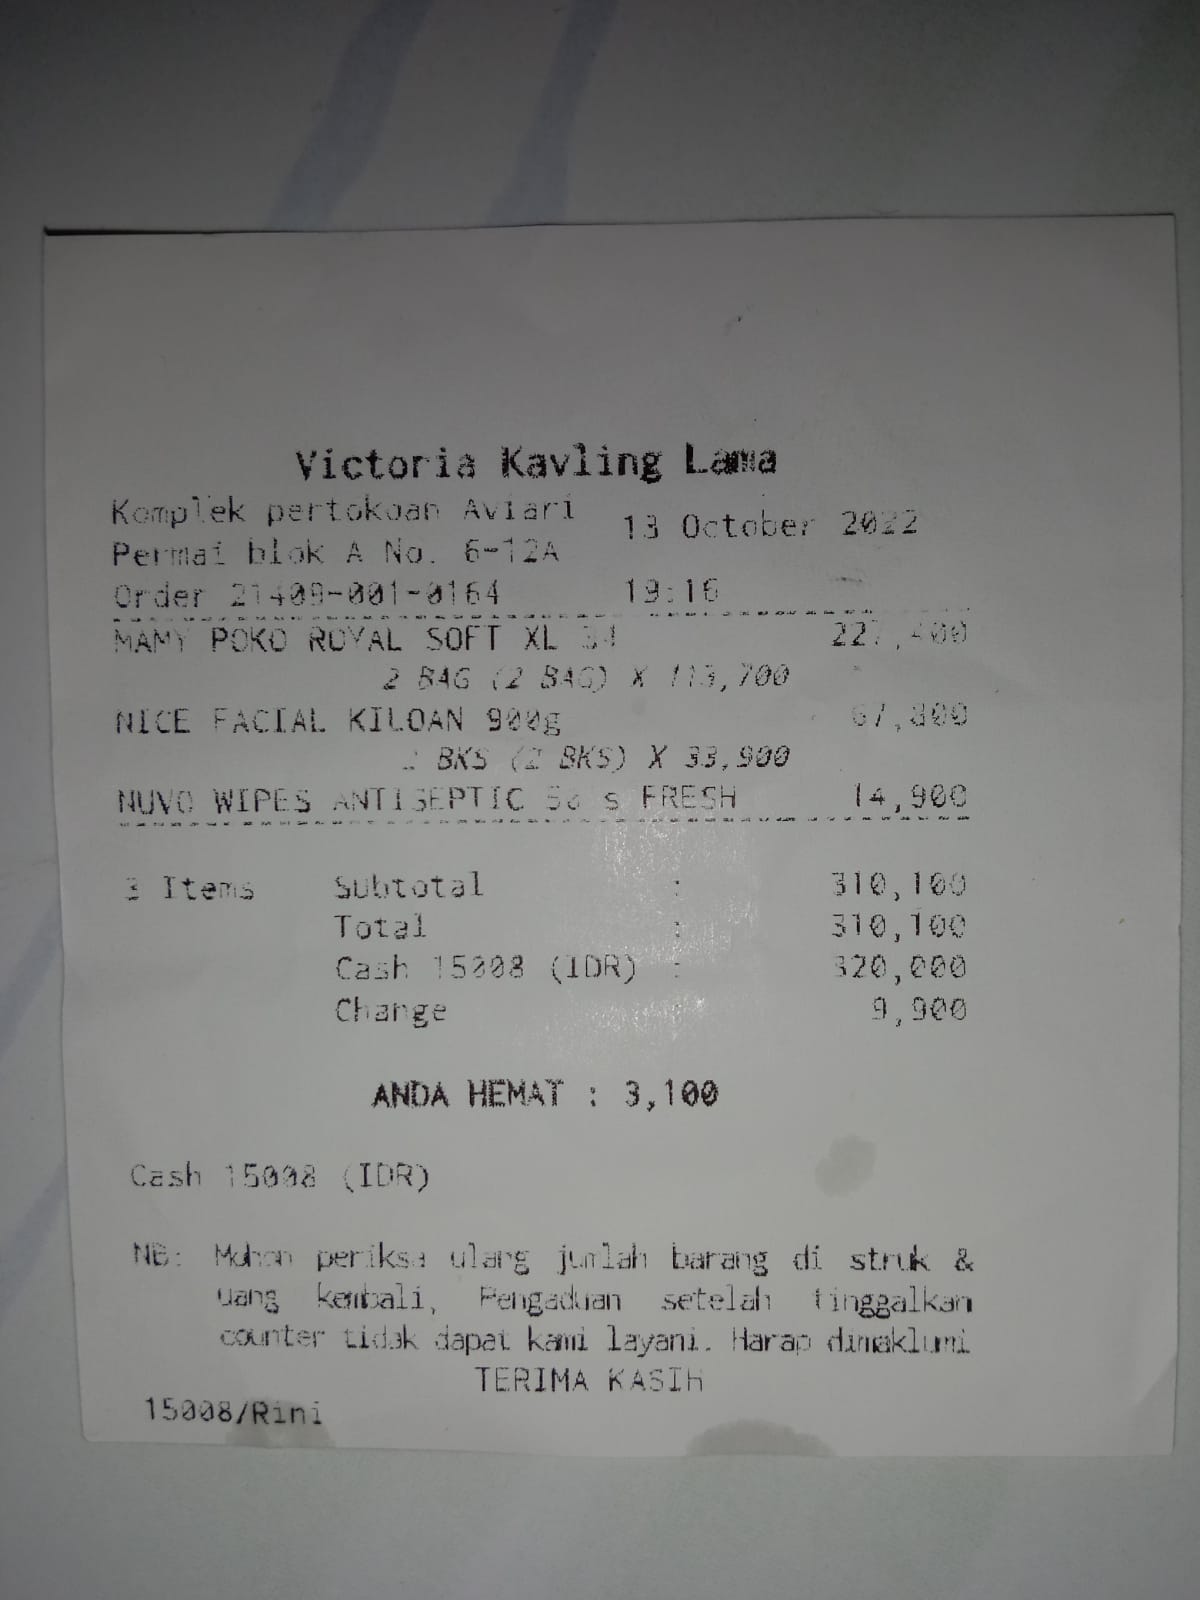 Victoria Kavling Lama
Komplek pertokoan Aviari
Permai blok A No. 6-12A
13 October 2022
Order 21409-001-0164 19:16
MAMY POKO ROYAL SOFT XL 34 227,400
2 BAG (2 BAG) X 113,700
NICE FACIAL KILOAN 900g 67,800
2 BKS (2 BKS) X 33,900
NUVO WIPES ANTISEPTIC FRESH 14,900
3 Items Subtotal : 310,100
Total : 310,100
Cash 15008 (IDR) : 320,000
Change : 9,900
ANDA HEMAT : 3,100
Cash 15008 (IDR)
NB: Mohon periksa ulang jumlah barang di struk &
uang kembali, Pengaduan setelah tinggalkan
counter tidak dapat kami layani. Harap dimaklumi
TERIMA KASIH
15008/Rini